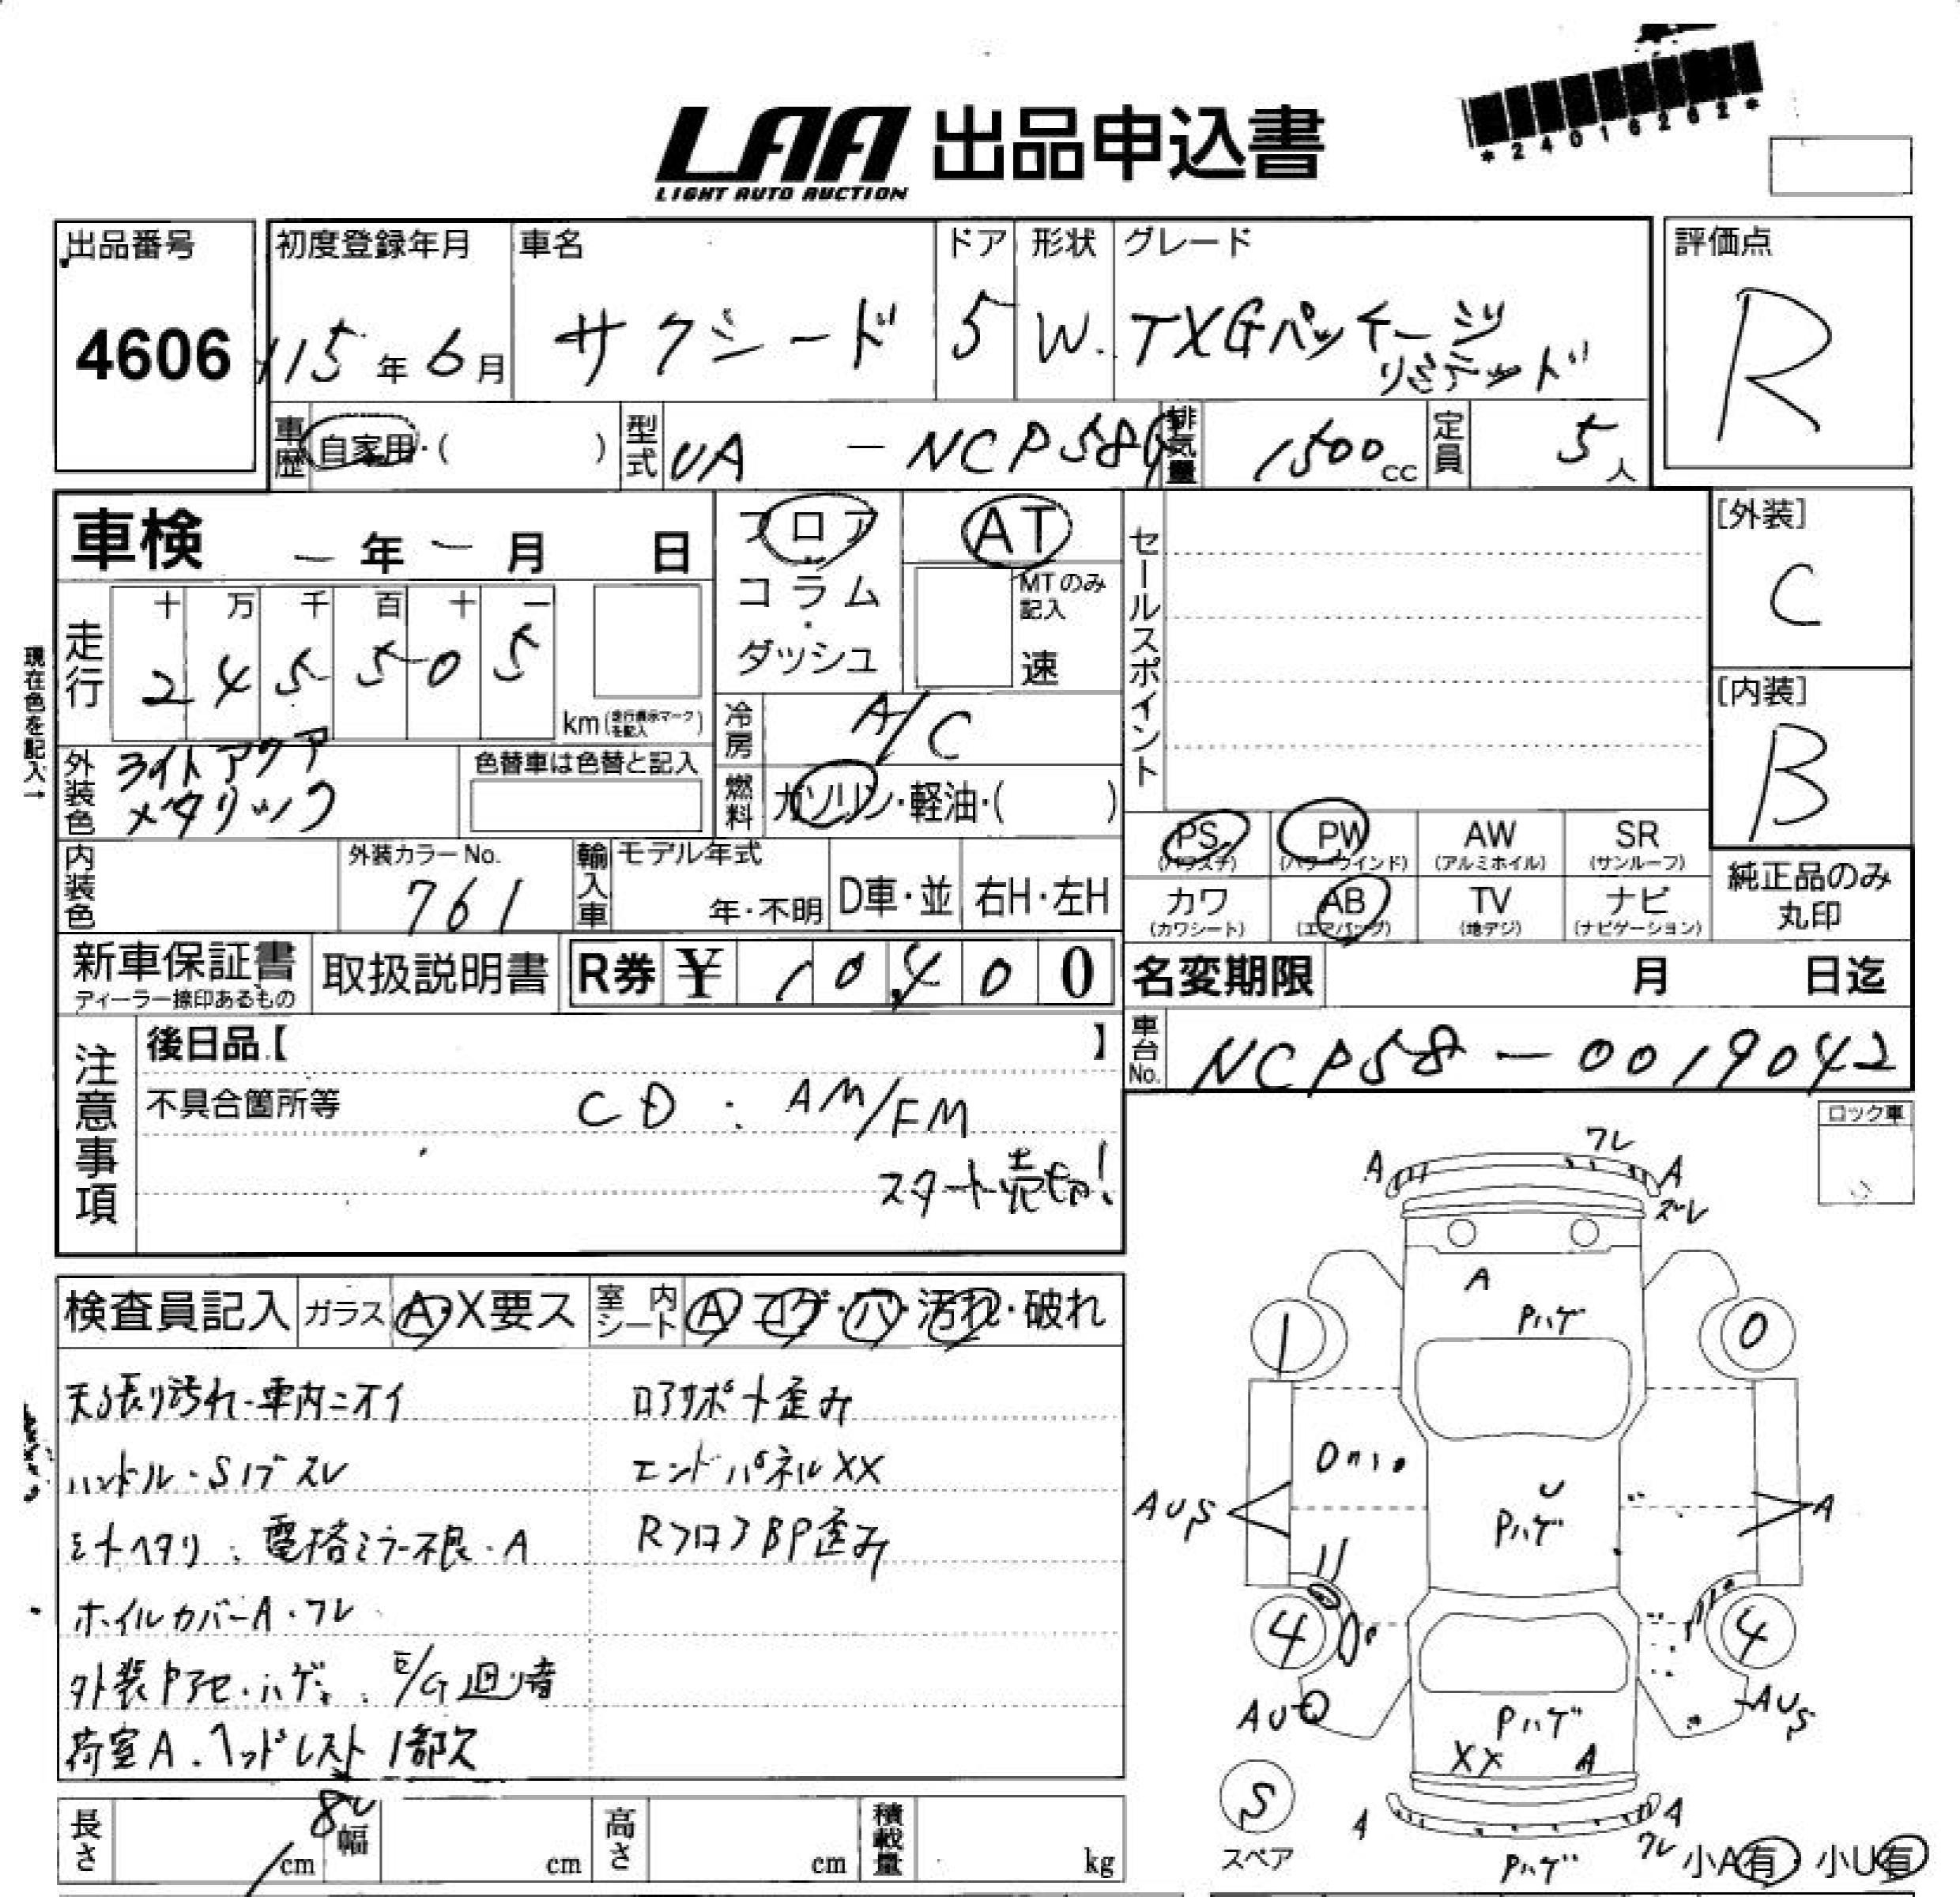 *24016262*
LAA 出品申込書
LIGHT AUTO AUCTION
出品番号
4606
初度登録年月
H15年6月
車名
サクシード
ドア
5
形状
W.
グレード
TXGパッケージ
リミテッド
評価点
R
車歴 自家用・( )
型式 UA - NCP58G
排気量 1500cc
定員 5人
車検 ー年ー月 日
フロア
コラム
・
ダッシュ
AT
MTのみ
記入
速
セールスポイント
[外装]
C
[内装]
B
現在色を記入→
走行
十 万 千 百 十 一
2 4 5 5 0 5
km(走行表示マークを記入)
冷房 A/C
外装色 ライトアクア
メタリック
色替車は色替と記入
燃料 ガソリン・軽油・( )
PS (パワステ)
PW (パワーウインド)
AW (アルミホイル)
SR (サンルーフ)
カワ (カワシート)
AB (エアバッグ)
TV (地デジ)
ナビ (ナビゲーション)
純正品のみ
丸印
内装色
外装カラーNo.
761
輸入車
モデル年式
年・不明
D車・並
右H・左H
新車保証書
ディーラー捺印あるもの
取扱説明書
R券 ¥ 10,400
名変期限 月 日迄
車台No. NCP58-0019042
注意事項
後日品【 】
不具合箇所等
CD : AM/FM
スタート売切!
ロック車
検査員記入
ガラス A・X要ス
室内シート A コゲ・穴・汚れ・破れ
天張り汚れ・車内ニオイ
ハンドル・Sノブスレ
シートヘタリ . 電格ミラー不良・A
ホイルカバーA・ワレ
外装Pアセ・ハゲ . E/G廻り音
荷室A . ヘッドレスト1部欠
ロアサポート歪み
エンドパネルXX
RフロアBP歪み
長さ cm
幅 cm
高さ cm
積載量 kg
A
ワレ
A
ズレ
A
Pハゲ
1
0
AUS
U
Pハゲ
A
4
4
AU
Pハゲ
AUS
XX
A
S
スペア
A
A
ワレ
Pハゲ
小A有・小U有